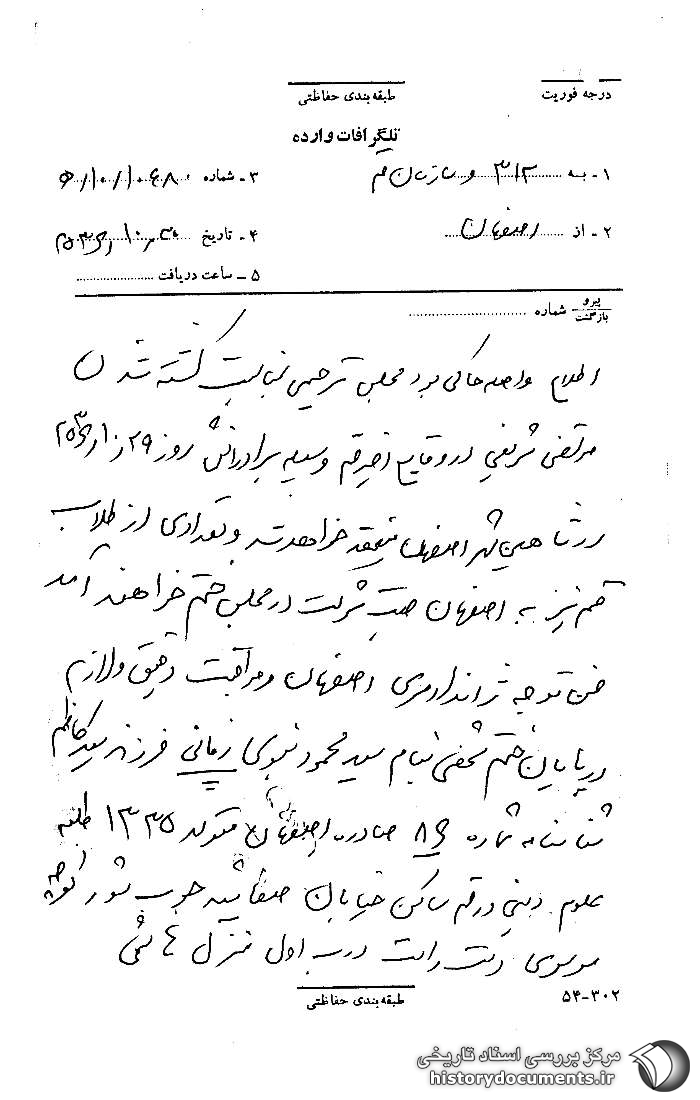 درجه فوریت
طبقه‌بندی حفاظتی
تلگرافات وارده
۱ - به ۳۱۲ و سازمان قم
۳ - شماره ۱۰۶۸/۱۰/ه
۲ - از اصفهان
۴ - تاریخ ۳۰/۱۰/۲۵۳۶
۵ - ساعت دریافت
پیرو
بازگشت
شماره
اطلاع واصله حاکی بود مجلس ترحیمی بمناسبت کشته شدن
مرتضی شریفی در وقایع اخیر قم وسیله برادرانش روز ۲۹/۱۰/۲۵۳۶
در شاهین شهر اصفهان منعقد خواهد شد و تعدادی از طلاب
قم نیز به اصفهان جهت شرکت در مجلس ختم خواهند آمد
ضمن توجیه ژاندارمری اصفهان و مراقبت دقیق و لازم
در پایان ختم شخصی بنام سید محمود نبوی زمانی فرزند سید کاظم
شناسنامه شماره صادره اصفهان متولد ۱۳۳۵ طلبه
علوم دینی در قم ساکن خیابان صفائیه جنب کوچه
موسوی دست راست درب اول منزل هاشمی
طبقه‌بندی حفاظتی
۵۴-۳۰۲
مرکز بررسی اسناد تاریخی
historydocuments.ir